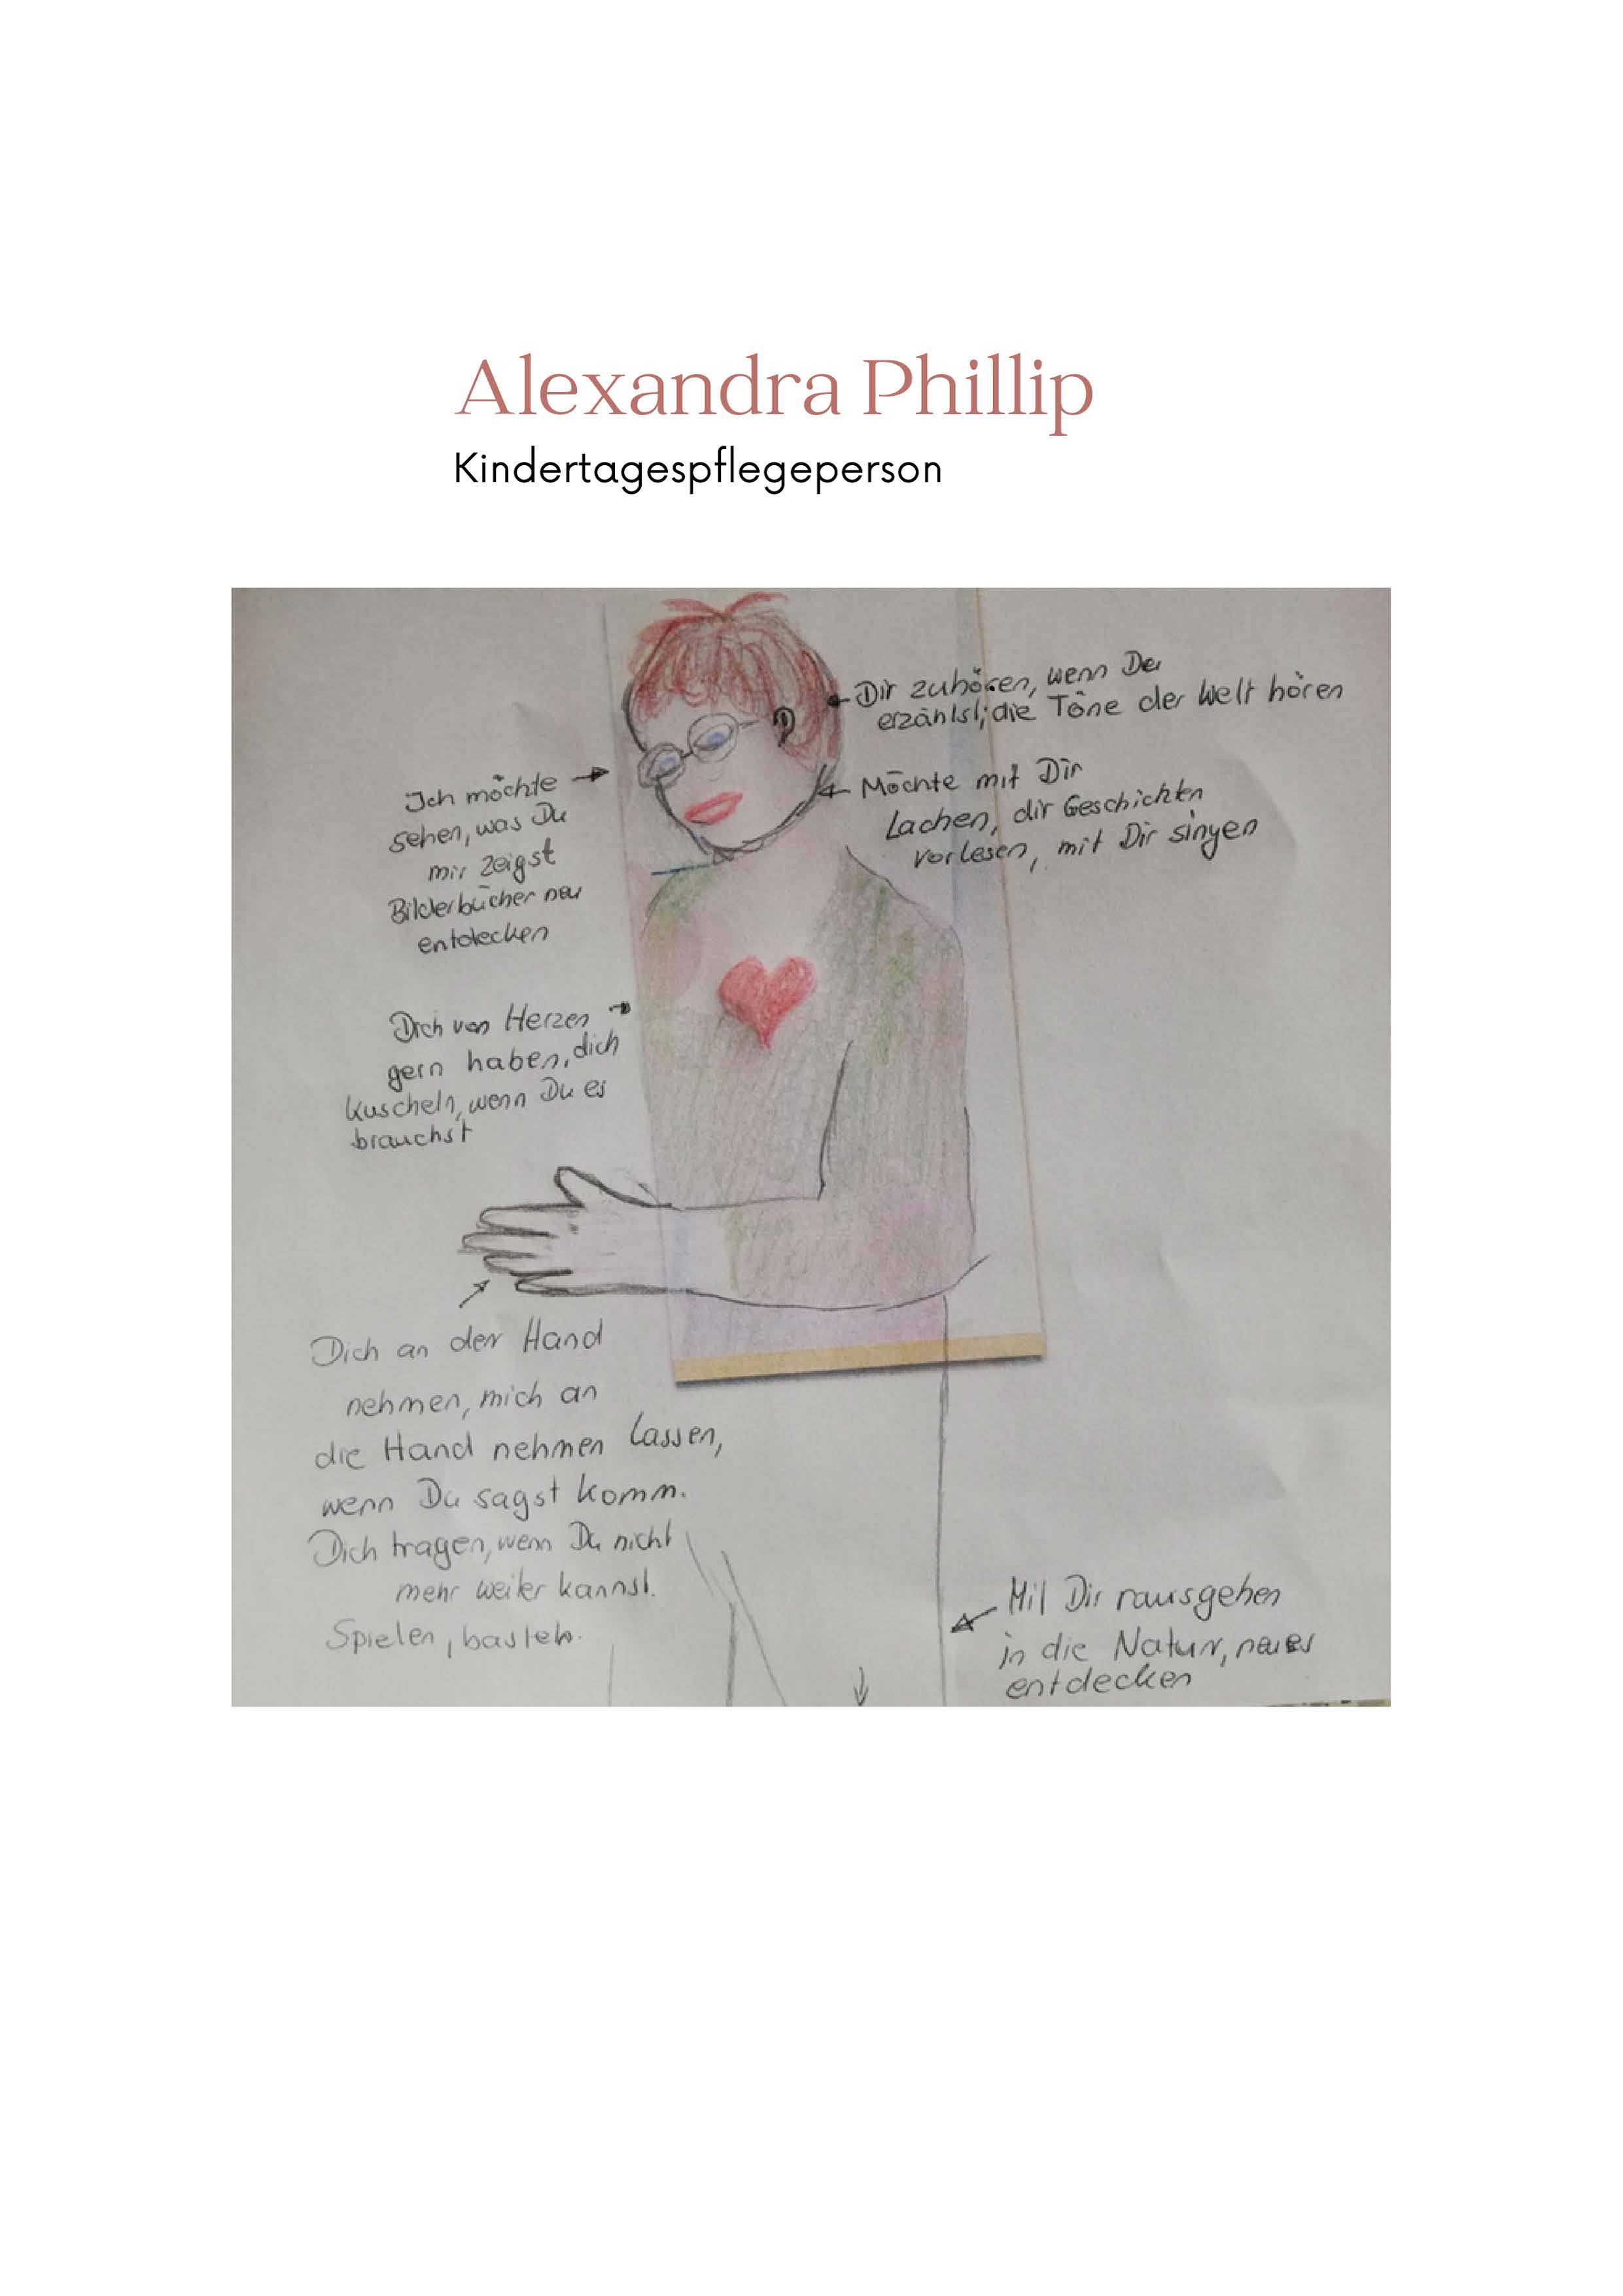 Alexandra Phillip
Kindertagespflegeperson
Dir zuhören, wenn Du
erzählst, die Töne der Welt hören
Ich möchte
sehen, was Du
mir zeigst
Bilderbücher neu
entdecken
Möchte mit Dir
Lachen, dir Geschichten
vorlesen, mit Dir singen
Dich von Herzen
gern haben, dich
kuscheln, wenn Du es
brauchst
Dich an der Hand
nehmen, mich an
die Hand nehmen lassen,
wenn Du sagst komm.
Dich tragen, wenn Du nicht
mehr weiter kannst.
Spielen, basteln.
Mit Dir rausgehen
in die Natur, neues
entdecken